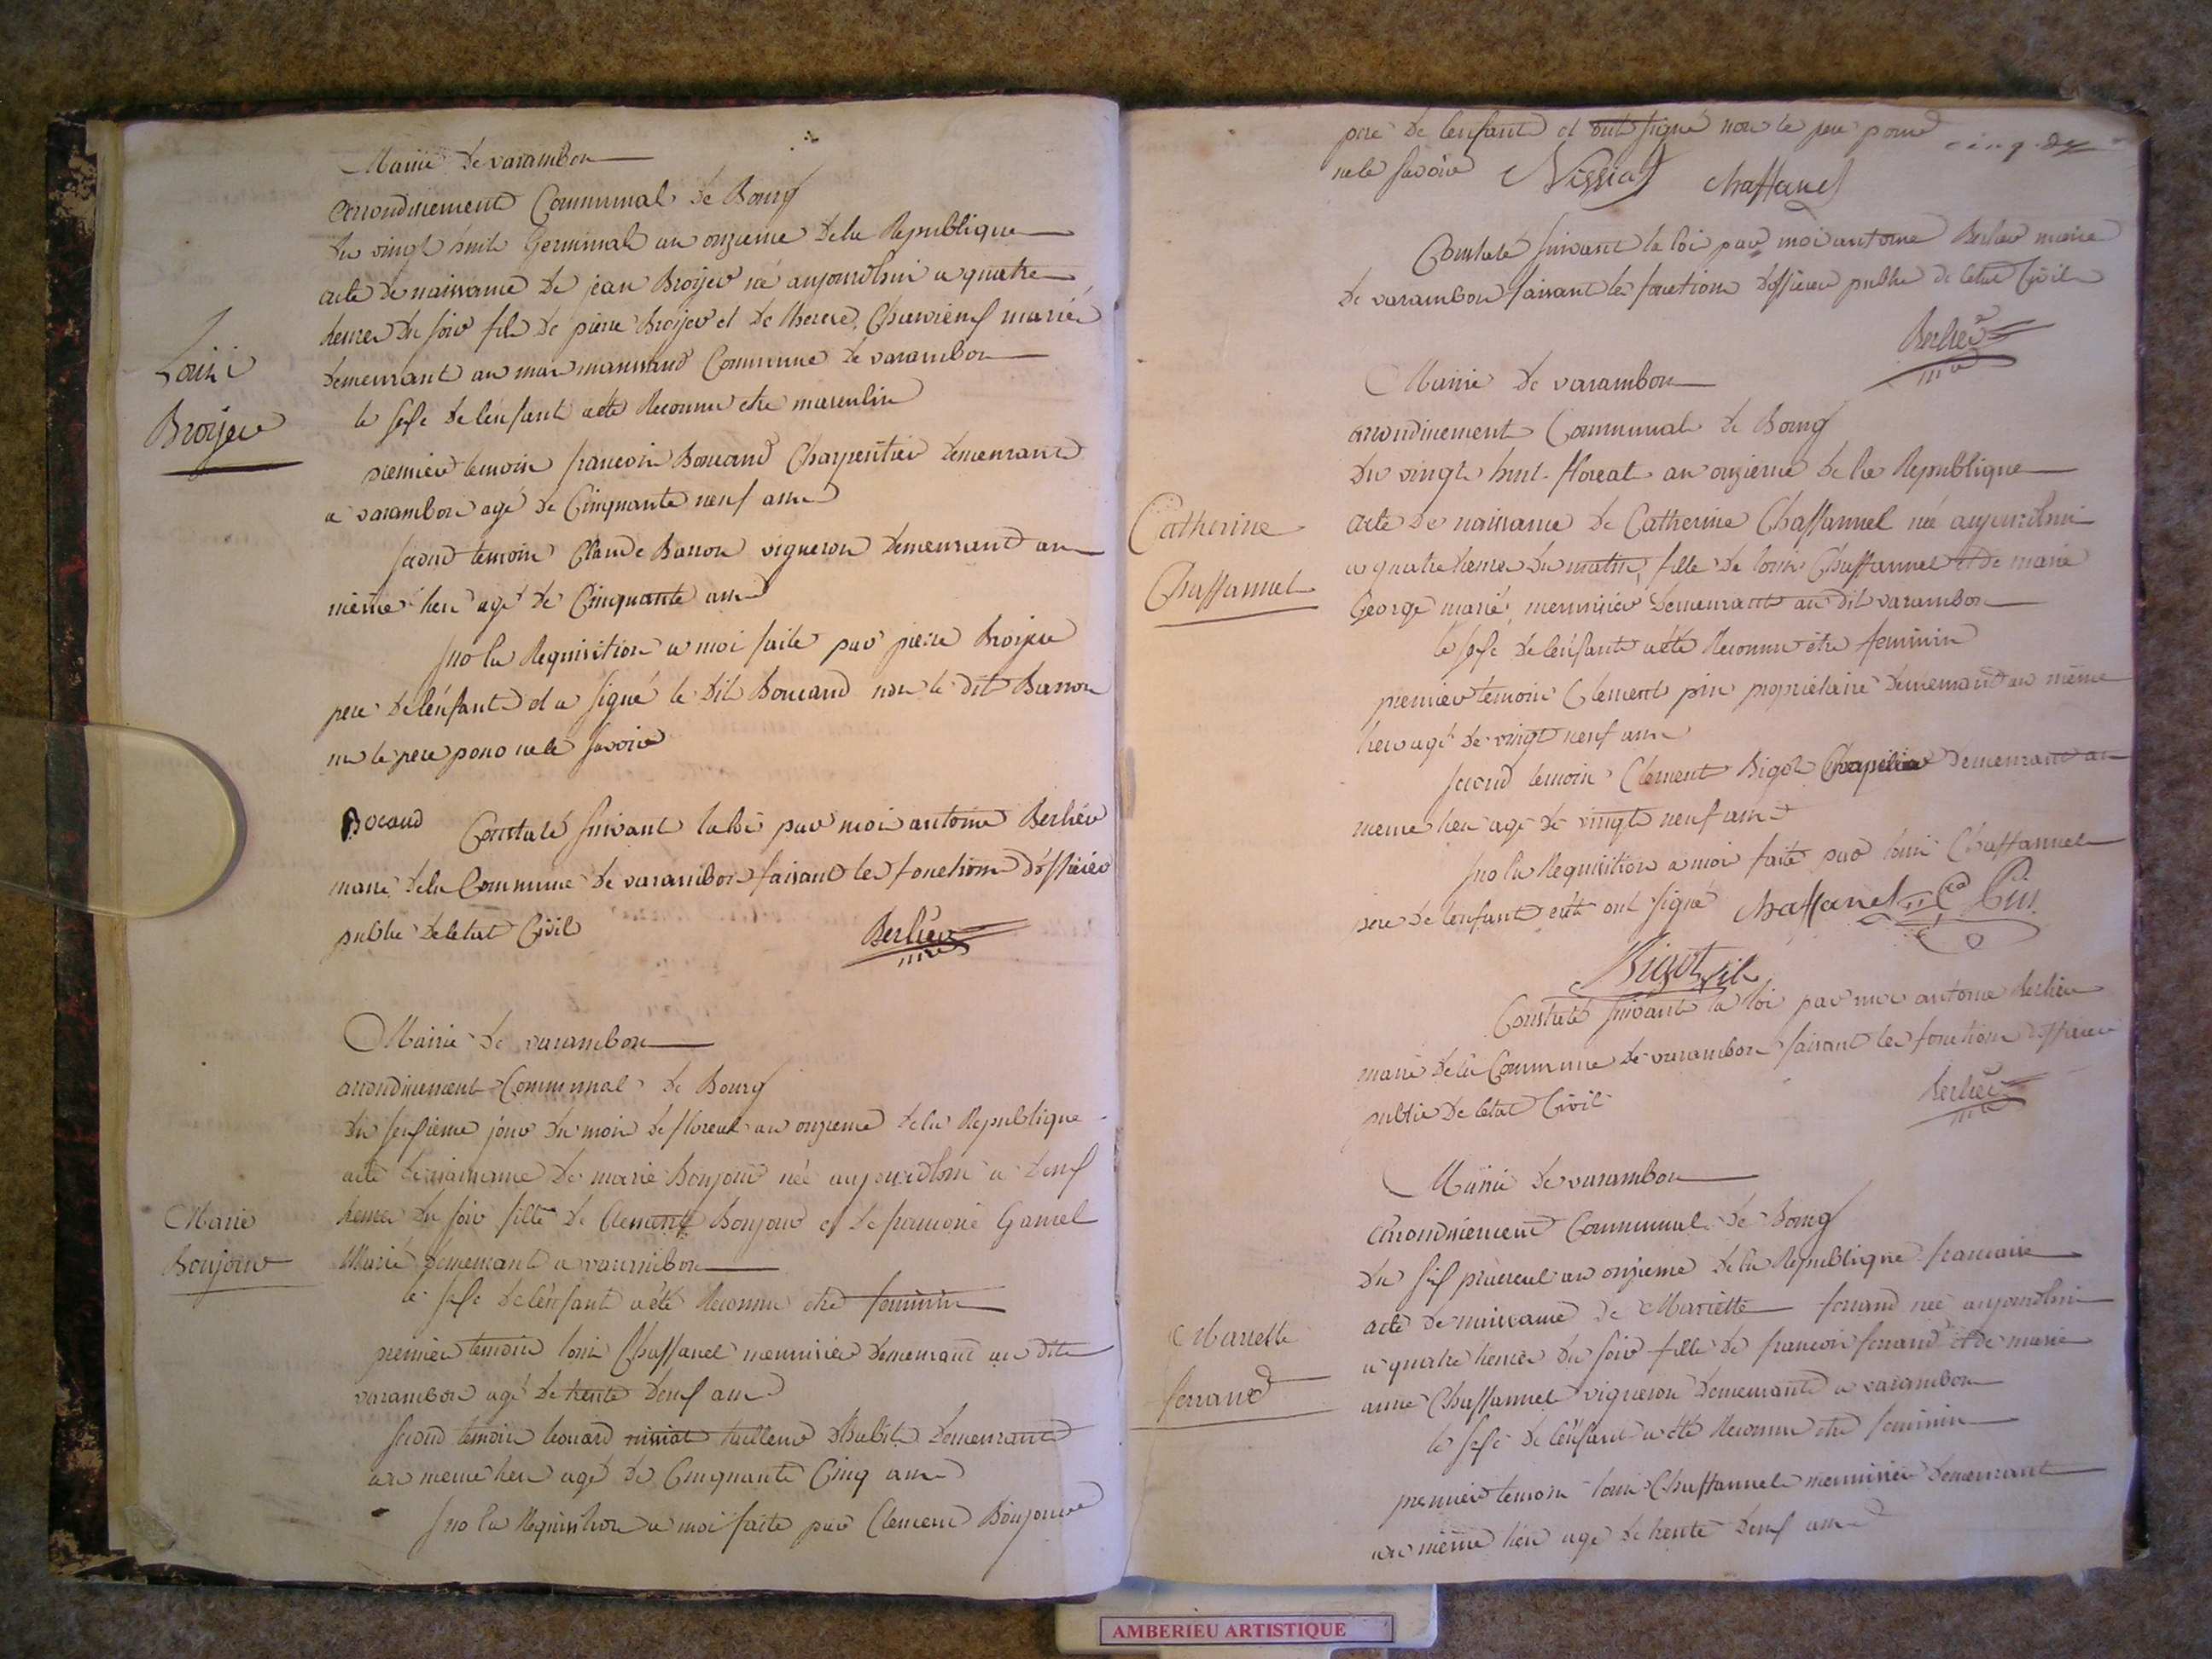 Mairie de varambon
arrondissement Communal de Bourg
du vingt huit Germinal an onzieme de la Republique
acte de naissance de jean Broijer né aujourdhui a quatre
heures du soir fils de pierre Broijer et de therese mariés
demeurant au mas Commune de varambon
le sexe de lenfant a été Reconnu etre masculin
premier temoin francois Boucand Charpentier demeurant
a varambon agé de Cinquante neuf ans
second temoin Claude Barron vigneron demeurant au
même lieu agé de Cinquante ans
sur la Requisition a moi faite par pierre Broijer
pere de lénfant et a signé le dit Boucand non le dit Barron
ni le pere pour ne le savoir
Louis
Broijer
Bocand Constaté suivant la loi par moi antoine Berlier
maire de la Commune de varambon faisant les fonctions d'officier
public de letat Civil Berlier
Mairie de varambon
arrondissement Communal de Bourg
du seizieme jour du mois de floreal an onzieme de la Republique
acte de naissance de marie Bonjour née aujourdhui a deux
heures du soir fille de Clement Bonjour et de francoise Gamel
Mariés demeurant a varambon
le sexe de lénfant a été Reconnu etre feminin
premier temoin louis Chaffanel menuisier demeurant au dit
varambon agé de trente deux ans
second temoin leonard nissiat tailleur dhabits demeurant
au meme lieu agé de Cinquante Cinq ans
sur la Requisition a moi faite par Clement Bonjour
Marie
Bonjour
pere de lenfant et ont signé non le pere pour
ne le savoir Nissiat Chaffanel
Constaté suivant la loi par moi antoine Berlier maire
de varambon faisant les fonctions dofficier public de letat Civil
Berlier
Mairie de varambon
arrondissement Communal de Bourg
du vingt huit floreal an onzieme de la Republique
acte de naissance de Catherine Chaffannel née aujourdhui
a quatre heures du matin, fille de louis Chaffannel et de marie
George mariés, menuisier demeurant au dit varambon
le sexe de lénfant a été Reconnu être feminin
premier temoin Clement pin propriétaire demeurant au même
lieu agé de vingt neuf ans
second temoin Clement Bigot Chapelier demeurant au
meme lieu agé de vingt neuf ans
sur la Requisition a moi faite par louis Chaffannel
pere de lenfant et ont signé Chaffanel Pin
Bigot fils
Constaté suivant la loi par moi antoine Berlier
maire de la Commune de varambon faisant les fonctions dofficier
public de letat Civil Berlier
Catherine
Chaffannel
Mairie de varambon
arrondissement Communal de Bourg
du six prairial an onzieme de la Republique francaise
acte de naissance de Mariette ferrand née aujourdhui
a quatre heures du soir fille de francois ferrand et de marie
anne Chaffannel vigneron demeurant a varambon
le sexe de lénfant a été Reconnu etre feminin
premier temoin louis Chaffannel menuisier demeurant
au même lieu agé de trente deux ans
Mariette
ferrand
AMBERIEU ARTISTIQUE